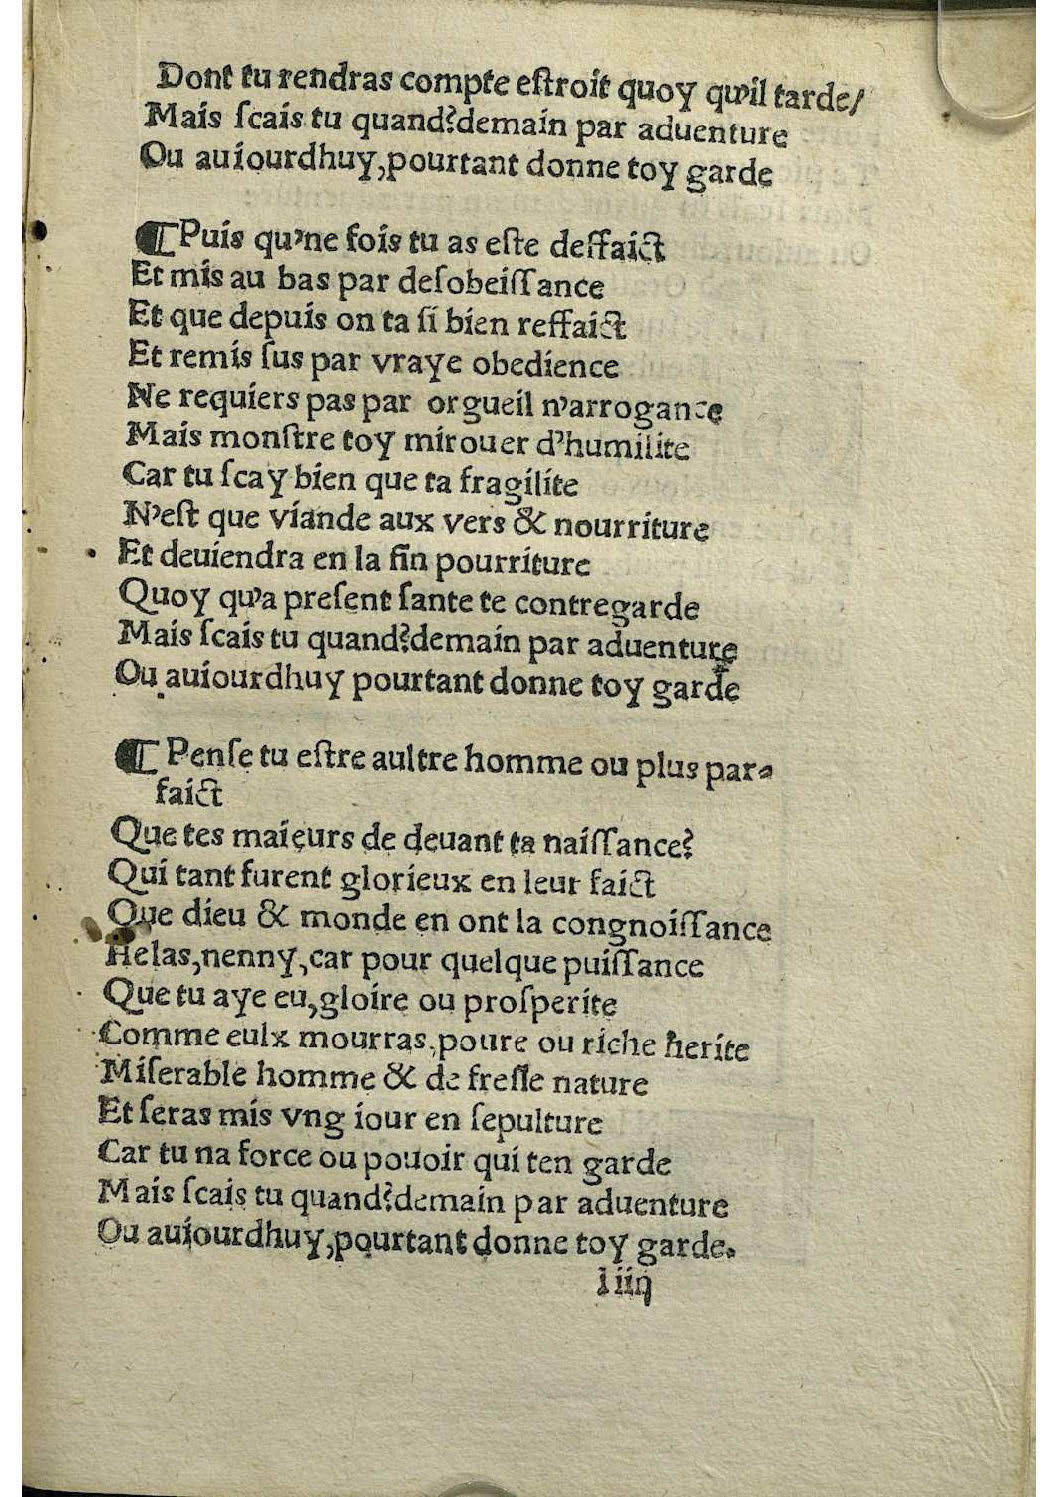 Dont tu rendras compte eſtroit quoy qu'il tarde/
Mais ſcais tu quand?demain par aduenture
Ou auiourdhuy,pourtant donne toy garde
¶Puis qu'ne fois tu as eſte deffaict
Et mis au bas par deſobeiſſance
Et que depuis on ta ſi bien reffaict
Et remis ſus par vraye obedience
Ne requiers pas par orgueil n'arrogance
Mais monſtre toy mirouer d'humilite
Car tu ſcay bien que ta fragilite
N'eſt que viande aux vers & nourriture
Et deuiendra en la fin pourriture
Quoy qu'a preſent ſante te contregarde
Mais ſcais tu quand?demain par aduenture
Ou auiourdhuy pourtant donne toy garde
¶ Penſe tu eſtre aultre homme ou plus par-
faict
Que tes maieurs de deuant ta naiſſance?
Qui tant furent glorieux en leur faict
Que dieu & monde en ont la congnoiſſance
Helas,nenny,car pour quelque puiſſance
Que tu aye eu,gloire ou proſperite
Comme eulx mourras,poure ou riche herite
Miſerable homme & de freſle nature
Et ſeras mis vng iour en ſepulture
Car tu na force ou pouoir qui ten garde
Mais ſcais tu quand?demain par aduenture
Ou auiourdhuy,pourtant donne toy garde.